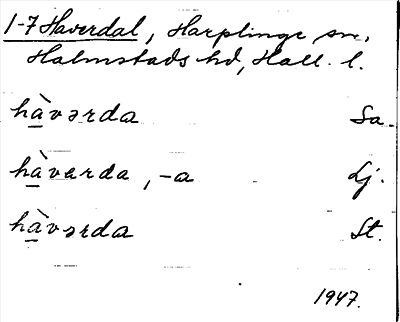 1-7 Haverdal, Harplinge sn,
Halmstads hd, Hall. l.
hàvərda Sa.
hàvarda, -a Lj.
hàvərda St.
1947.